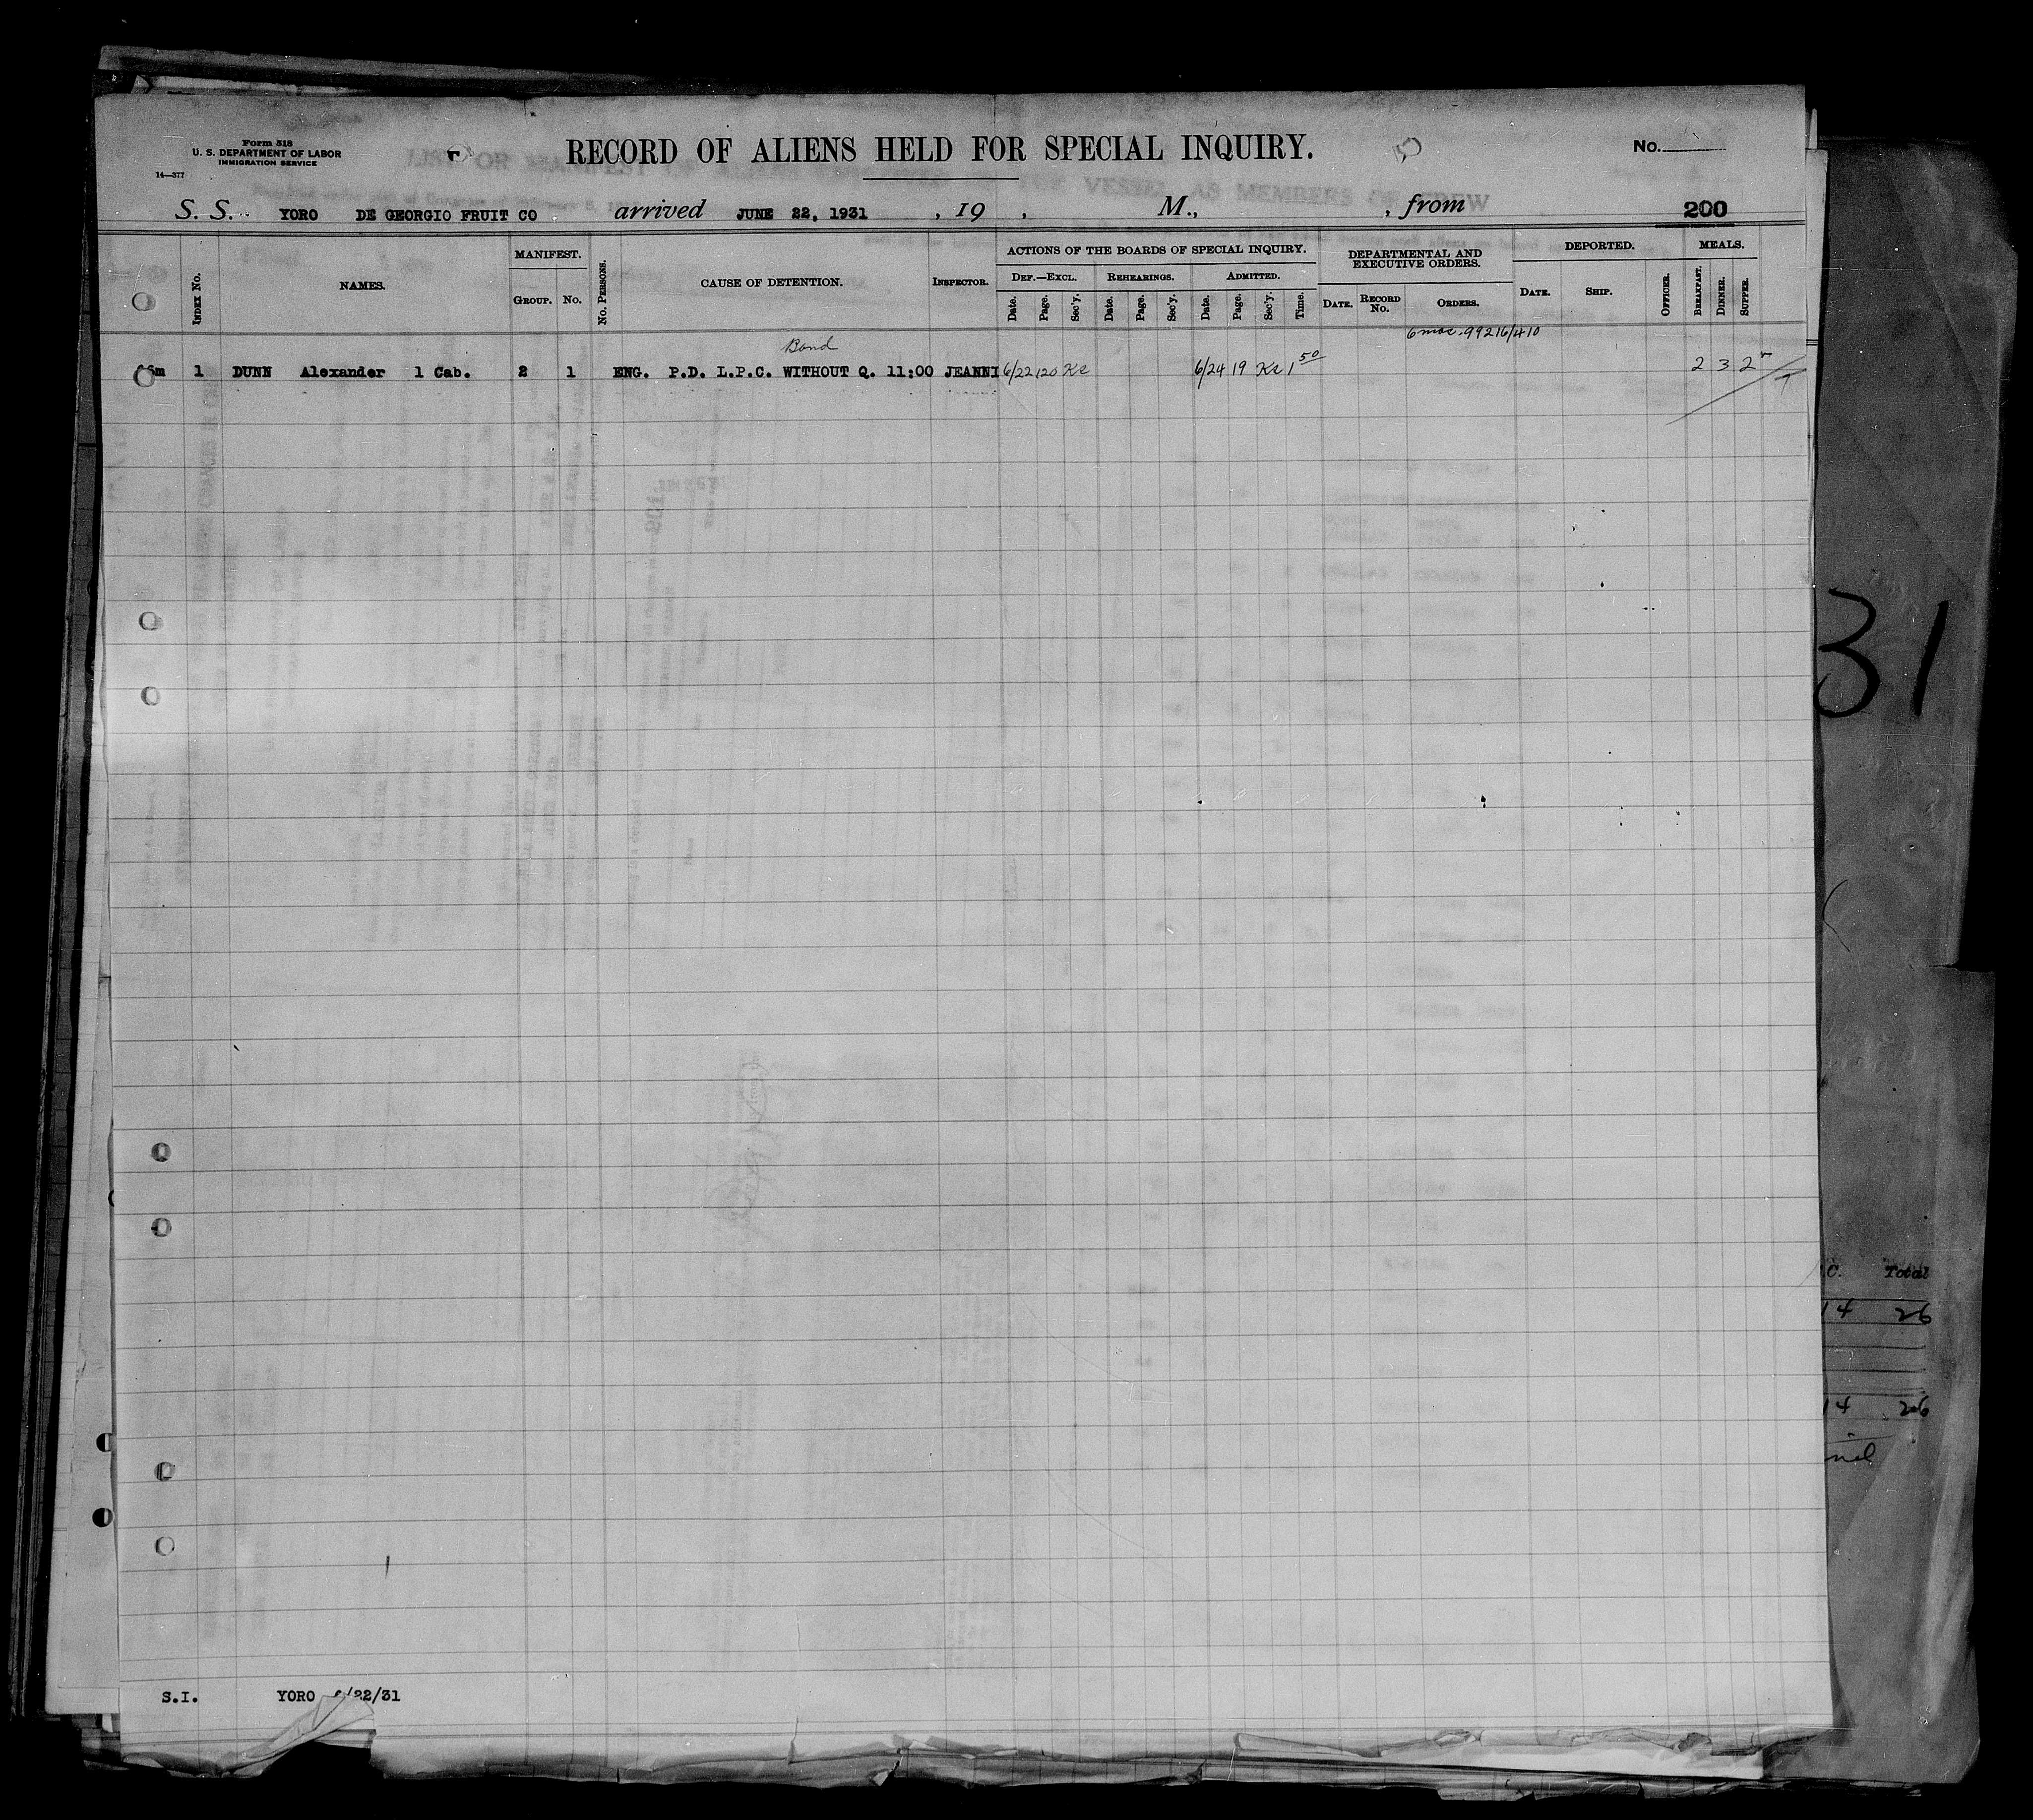 Form 518
U. S. DEPARTMENT OF LABOR
IMMIGRATION SERVICE
14—377
RECORD OF ALIENS HELD FOR SPECIAL INQUIRY.
No.
S. S. YORO DE GEORGIO FRUIT CO arrived JUNE 22, 1931 , 19 , M., , from 200
INDEX No.
NAMES.
MANIFEST.
GROUP. No.
No. PERSONS.
CAUSE OF DETENTION.
INSPECTOR.
ACTIONS OF THE BOARDS OF SPECIAL INQUIRY.
DEF.—EXCL. REHEARINGS. ADMITTED.
Date. Page. Sec'y. Date. Page. Sec'y. Date. Page. Sec'y. Time.
DEPARTMENTAL AND
EXECUTIVE ORDERS.
DATE. RECORD No. ORDERS.
DEPORTED.
DATE. SHIP. OFFICER.
MEALS.
BREAKFAST. DINNER. SUPPER.
6 mos. 99216/410
Bond
1 DUNN Alexander 1 Cab. 2 1 ENG. P.D. L.P.C. WITHOUT Q. 11:00 JEANNI 6/22 120 Ke 6/24 19 Ke 1 50 2 3 2
31
Total
14 26
14 26
S.I. YORO /22/31